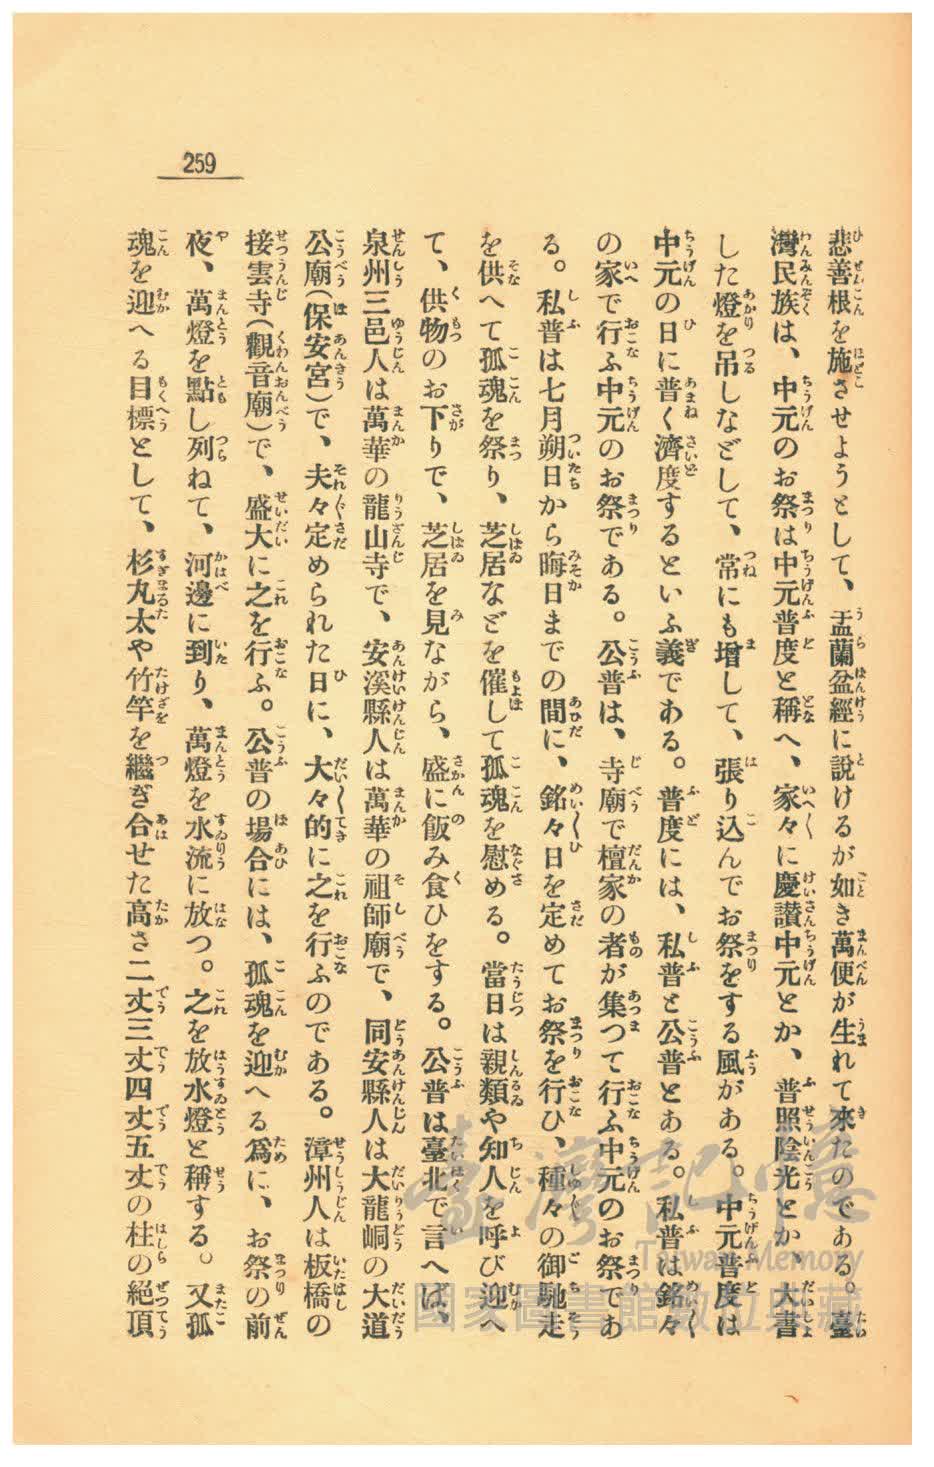 259
悲善根を施させようとして、盂蘭盆經に說けるが如き萬便が生れて來たのである。臺
灣民族は、中元のお祭は中元普度と稱へ、家々に慶讃中元とか、普照陰光とか、大書
した燈を吊しなどして、常にも增して、張り込んでお祭をする風がある。中元普度は
中元の日に普く濟度するといふ義である。普度には、私普と公普とある。私普は銘々
の家で行ふ中元のお祭である。公普は、寺廟で檀家の者が集つて行ふ中元のお祭であ
る。私普は七月朔日から晦日までの間に、銘々日を定めてお祭を行ひ、種々の御馳走
を供へて孤魂を祭り、芝居などを催して孤魂を慰める。當日は親類や知人を呼び迎へ
て、供物のお下りで、芝居を見ながら、盛に飮み食ひをする。公普は臺北で言へば、
泉州三邑人は萬華の龍山寺で、安溪縣人は萬華の祖師廟で、同安縣人は大龍峒の大道
公廟(保安宮)で、夫々定められた日に、大々的に之を行ふのである。漳州人は板橋の
接雲寺(觀音廟)で、盛大に之を行ふ。公普の場合には、孤魂を迎へる爲に、お祭の前
夜、萬燈を點し列ねて、河邊に到り、萬燈を水流に放つ。之を放水燈と稱する。又孤
魂を迎へる目標として、杉丸太や竹竿を繼ぎ合せた高さ二丈三丈四丈五丈の柱の絕頂
臺灣記憶
Taiwan Memory
國家圖書館數位典藏